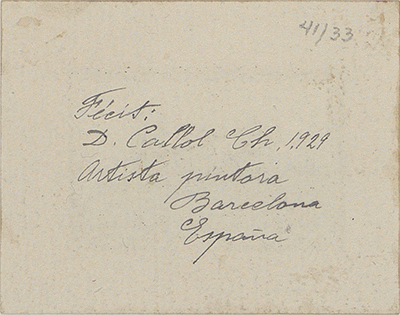 41/33
Fécit:
D. Callol Ch, 1929
Artista pintora
Barcelona
España